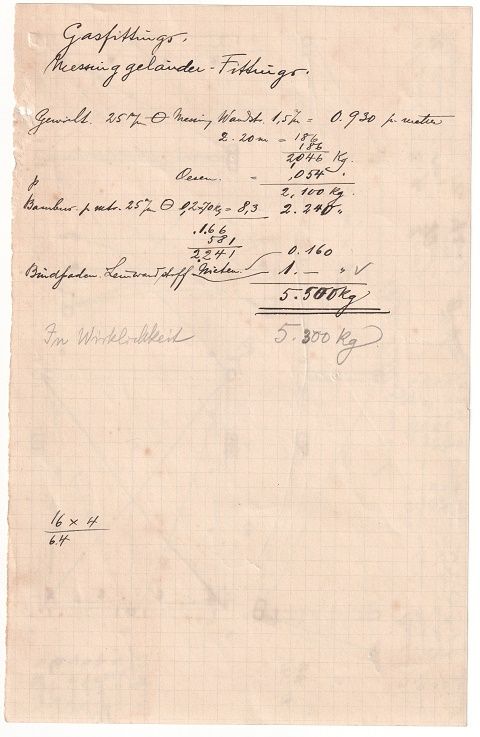 Gasfittings.
Messinggeländer-Fittings.
Gewicht. 25 m/m Messing Wandst. 1,5 m/m = 0.930 p. meter
2.20 m = 186
186
2046 Kg.
Oesen = ,054 "
2,100 Kg.
Bambus p. mtr. 25 m/m 0,270 Kg = 8,3 2.240 "
.166
581
2.241
0.160
Bindfaden. Leinwandstoff 1.— " ✓
5.500 Kg
In Wirklichkeit 5.300 Kg
16 x 4
64